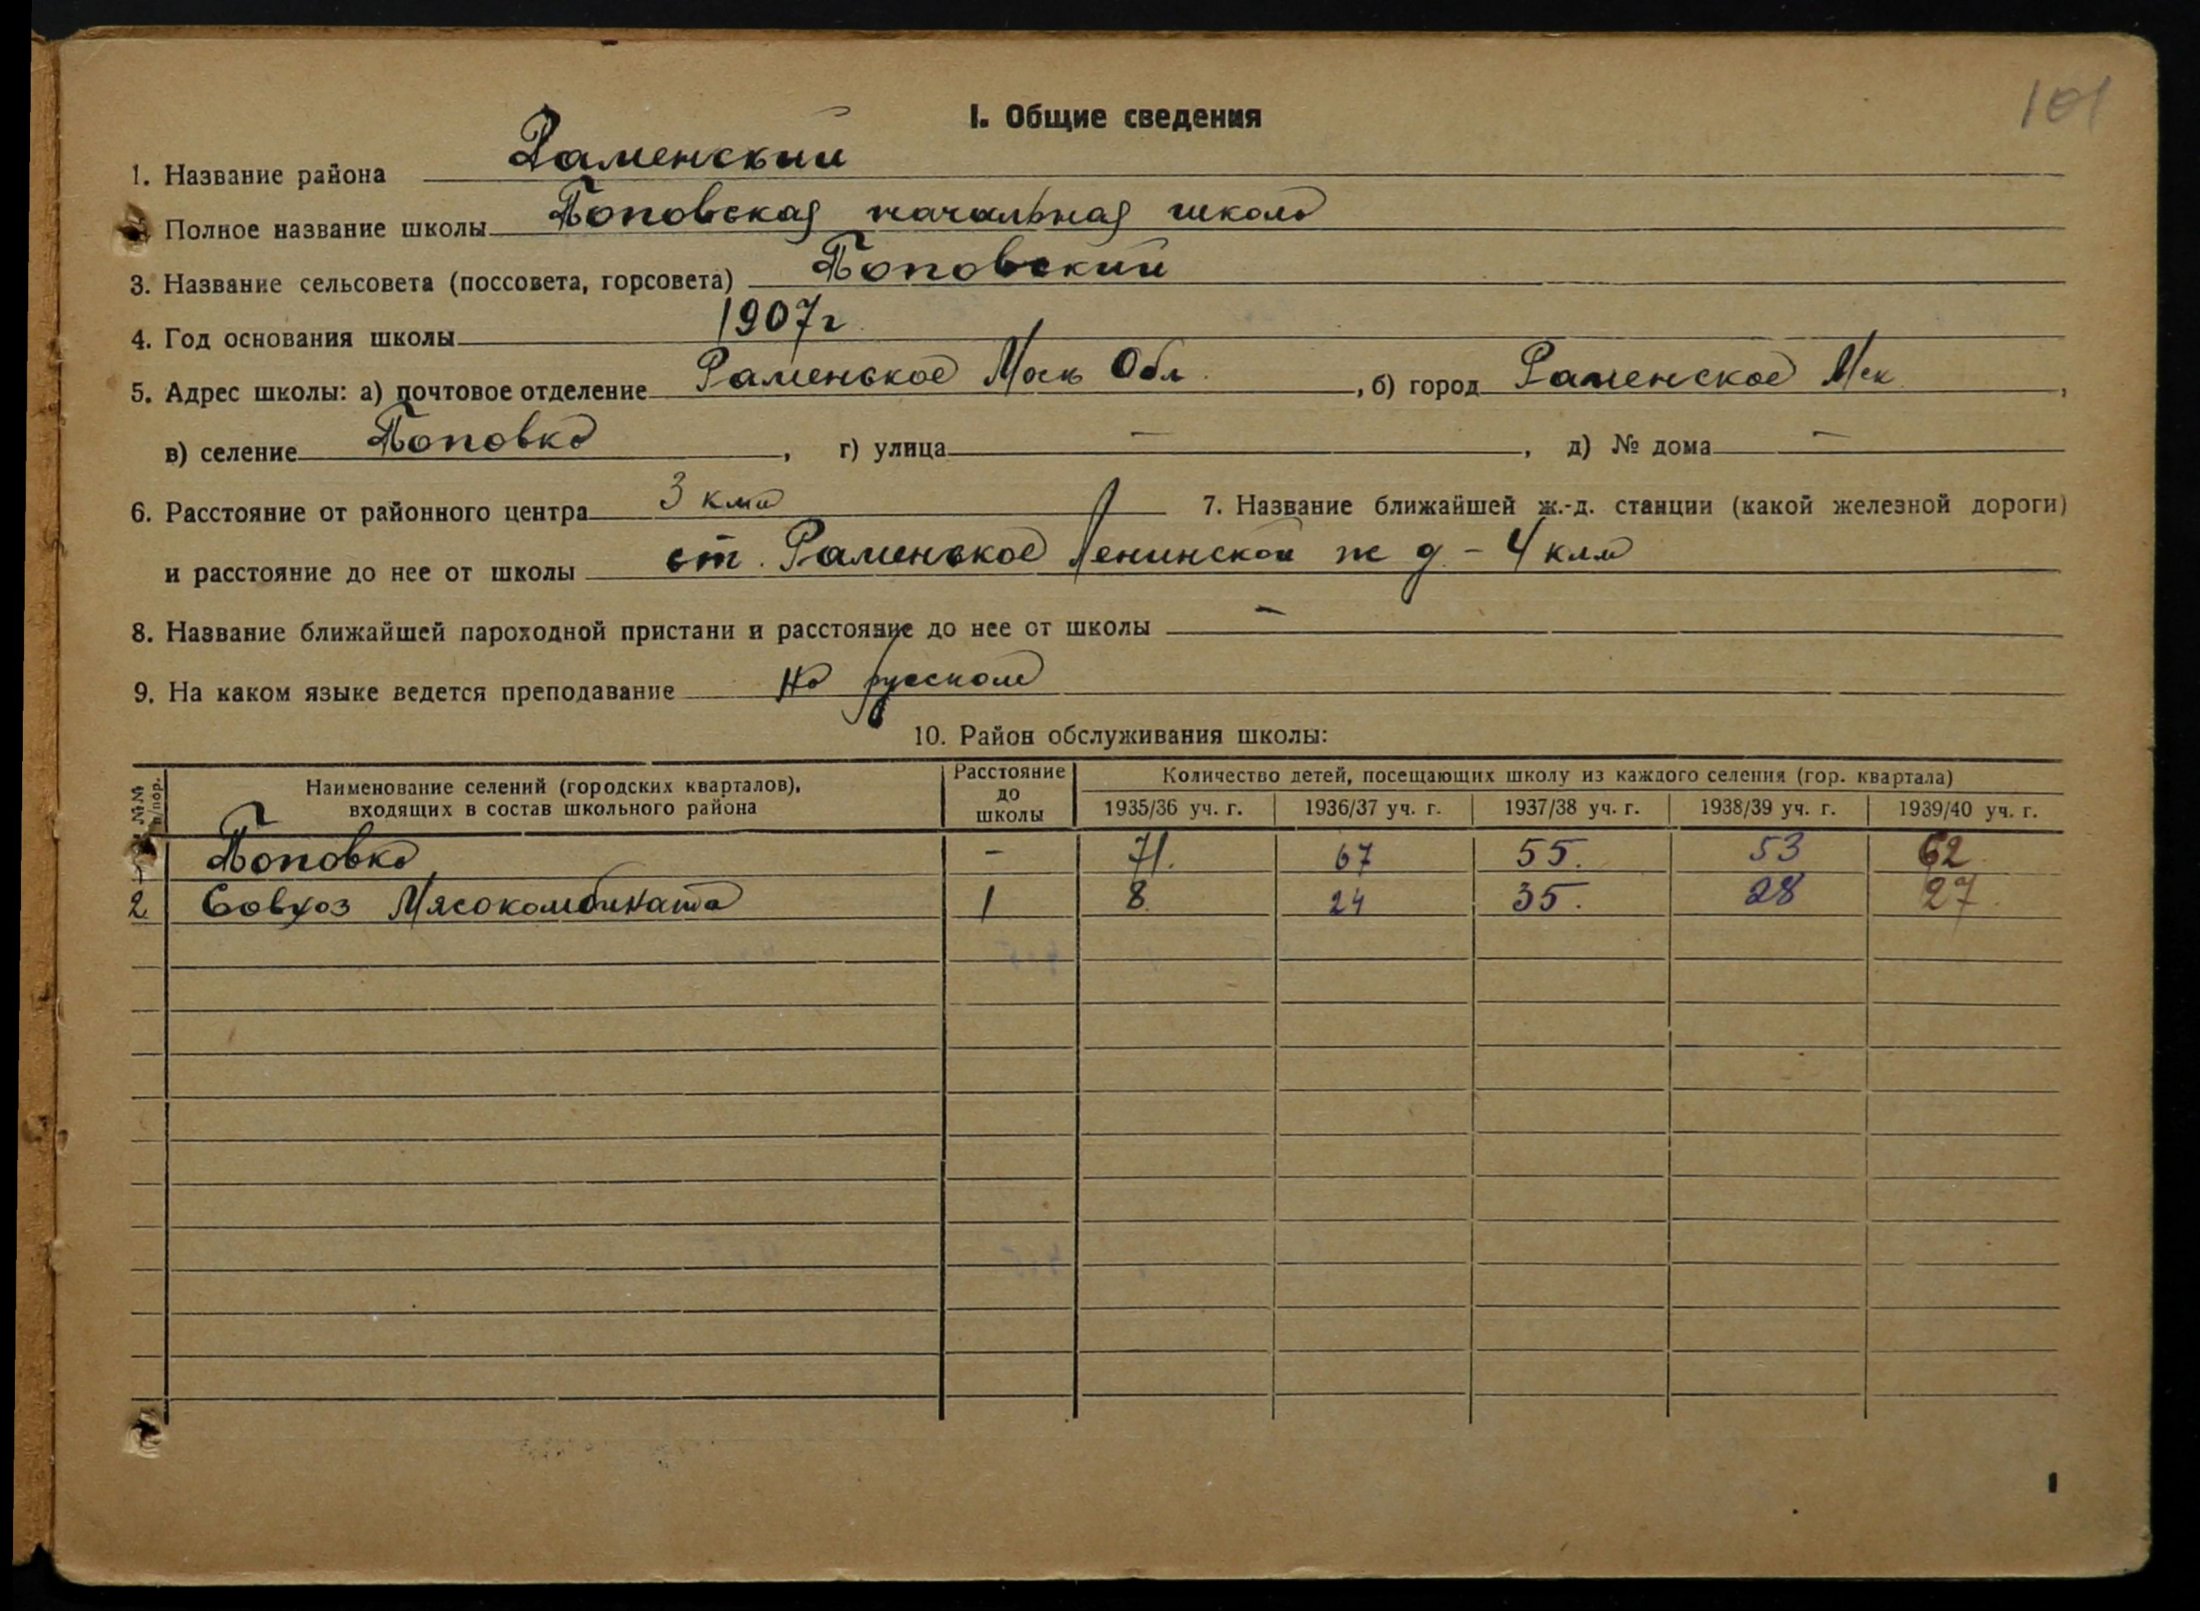 101
I. Общие сведения
1. Название района Раменский
Полное название школы Поповская начальная школа
3. Название сельсовета (поссовета, горсовета) Поповский
4. Год основания школы 1907 г
5. Адрес школы: а) почтовое отделение Раменское Моск Обл. , б) город Раменское Мск ,
в) селение Поповка , г) улица — , д) № дома —
6. Расстояние от районного центра 3 клм 7. Название ближайшей ж.-д. станции (какой железной дороги)
и расстояние до нее от школы ст. Раменское Ленинской ж д - 4 клм
8. Название ближайшей пароходной пристани и расстояние до нее от школы —
9. На каком языке ведется преподавание На русском
10. Район обслуживания школы:
№№ п/пор. Наименование селений (городских кварталов), входящих в состав школьного района Расстояние до школы Количество детей, посещающих школу из каждого селения (гор. квартала)
1935/36 уч. г. 1936/37 уч. г. 1937/38 уч. г. 1938/39 уч. г. 1939/40 уч. г.
Поповка — 71. 67 55. 53 62
2 Совхоз Мясокомбината 1 8 24 35. 28 27
1